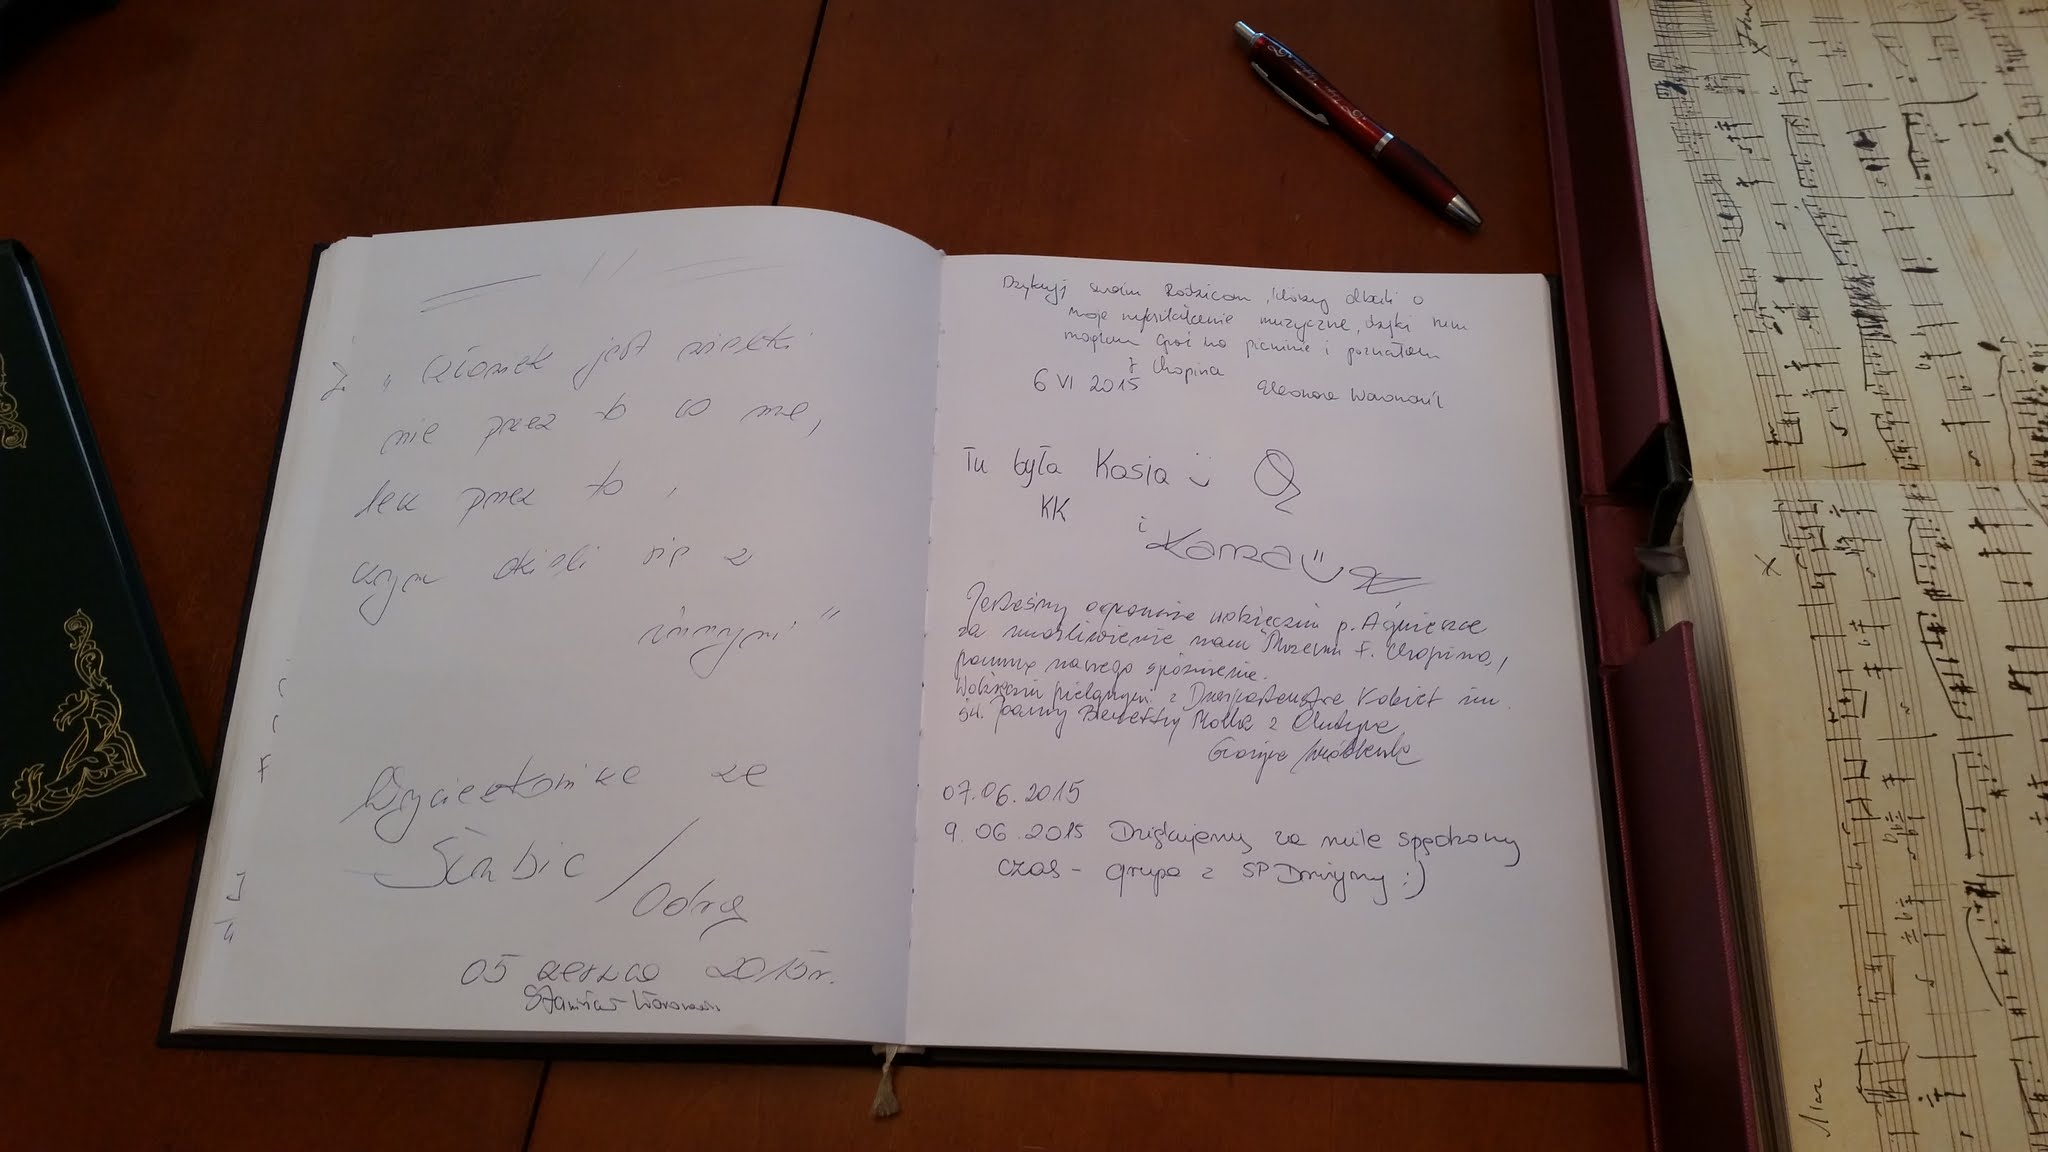 „ człowiek jest wielki
nie przez to co ma,
lecz przez to,
czym dzieli się z
innymi "
Wycieczkowicze ze
Ścinawic / Odrą
05 czerwca 2015r.
Stanisław
Dziękuję swoim Rodzicom, którzy dbali o
moje wykształcenie muzyczne, dzięki nim
mogłam grać na pianinie i poznałam
F Chopina
6 VI 2015 Eleonora
Tu była Kasia
KK
i
Jesteśmy ogromnie wdzięczni p. Agnieszce
za umożliwienie nam Muzeum F. Chopina,
pomimo naszego spóźnienia.
Wdzięczni pielgrzymi z Duszpasterstwa Kobiet im
św. Joanny Beretty Molla z
Grażyna
07.06.2015
9.06.2015 Dziękujemy za mile spędzony
czas - grupa z SP :)